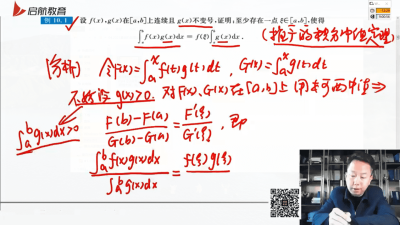 启航教育
例 10.1 设 f(x), g(x)在[a,b]上连续且 g(x)不变号, 证明, 至少存在一点 ξ∈[a,b], 使得
∫ₐᵇ f(x)g(x)dx = f(ξ)∫ₐᵇ g(x)dx. (推广的积分中值定理)
(分析) 令F(x)=∫ₐˣ f(t)g(t)dt, G(x)=∫ₐˣ g(t)dt
不妨设 g(x)>0. 对F(x), G(x)在[a,b]上 用柯西中值 ⇒
∫ₐᵇ g(x)dx>0
F(b)-F(a) / G(b)-G(a) = F'(ξ) / G'(ξ), 即
∫ₐᵇ f(x)g(x)dx / ∫ₐᵇ g(x)dx = f(ξ)g(ξ)